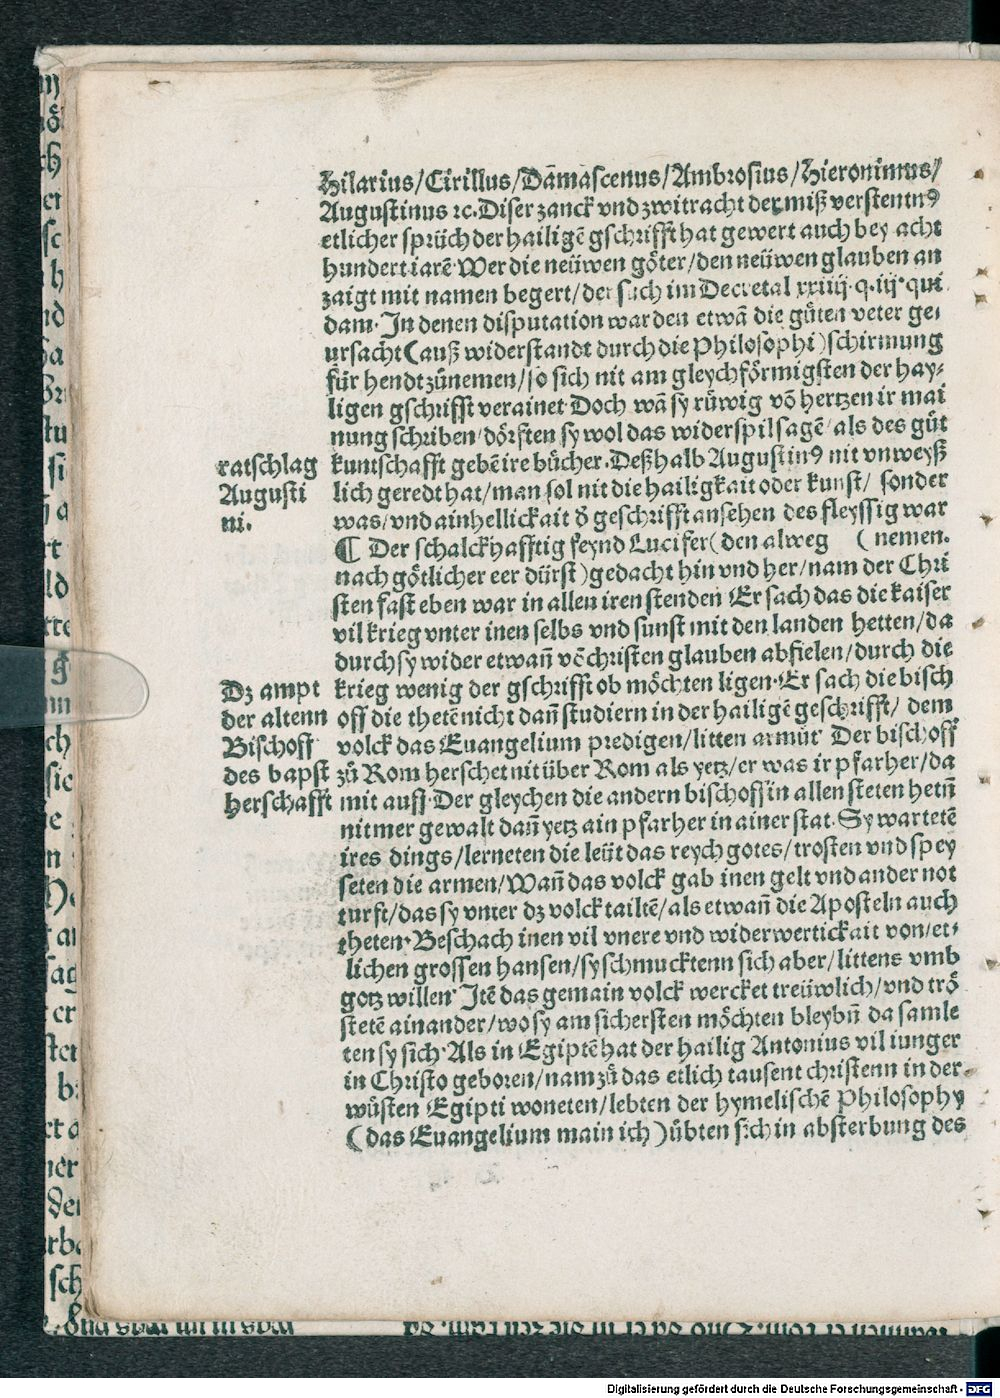 Hilarius/Cirillus/Dāmascenus/Ambrosius/Hieronimus/
Augustinus ꝛc. Diser zanck vnd zwitracht der miß verstentnꝰ
etlicher sprüch der hailigē gschrifft hat gewert auch bey acht
hundert iarē· Wer die neüwen göter/den neüwen glauben an
zaigt mit namen begert/der such im Decretal xxiiij· q· iij· qui
dam· In denen disputation warden etwā die gůten veter ge⸗
ursacht (auß widerstandt durch die Philosophi) schirmung
für hendt zůnemen/so sich nit am gleychförmigsten der hay⸗
ligen gschrifft verainet· Doch wā sy rüwig vō hertzen ir mai
nung schriben/dörften sy wol das widerspil sagē/als des gůt
kuntschafft gebē ire bücher. Deßhalb Augustinꝰ nit vnweyß
lich geredt hat/man sol nit die hailigkait oder kunst/ sonder
was/vnd ainhellickait d̕ geschrifft ansehen des fleyssig war
¶ Der schalckhafftig feynd Lucifer (den alweg ( nemen.
nach götlicher eer dürst) gedacht hin vnd her/nam der Chri
sten fast eben war in allen iren stenden Er sach das die kaiser
vil krieg vnter inen selbs vnd sunst mit den landen hetten/da
durch sy wider etwañ vō christen glauben abfielen/durch die
krieg wenig der gschrifft ob möchten ligen· Er sach die bisch
off die thetē nicht dañ studiern in der hailigē geschrifft/ dem
volck das Euangelium predigen/litten armůt· Der bischoff
zů Rom herschet nit über Rom als yetz/er was ir pfarher/da
mit auß· Der gleychen die andern bischoff in allen steten hetñ
nit mer gewalt dañ yetz ain pfarher in ainer stat· Sy wartetē
ires dings/lerneten die leüt das reych gotes/trosten vnd spey
seten die armen/Wañ das volck gab inen gelt vnd ander not
turft/das sy vnter dz volck tailtē/als etwañ die Aposteln auch
theten· Beschach inen vil vnere vnd widerwertickait von/et⸗
lichen grossen hansen/sy schmucktenn sich aber/littens vmb
gotz willen· Itē das gemain volck wercket treüwlich/vnd trö
stetē ainander/wo sy am sichersten möchten bleybñ da samle
ten sy sich· Als in Egiptē hat der hailig Antonius vil iunger
in Christo geboren/nam zů das etlich tausent christenn in der
wüsten Egipti woneten/lebten der hymelischē Philosophy
(das Euangelium main ich) übten sich in absterbung des
ratschlag
Augusti
ni.
Dz ampt
der altenn
Bischoff
des bapst
herschafft
Digitalisierung gefördert durch die Deutsche Forschungsgemeinschaft - DFG